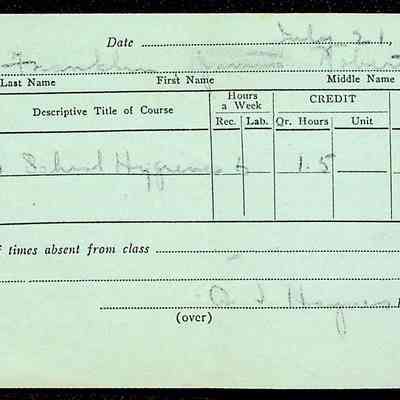 Date July 21,
Franklin
Last Name First Name Middle Name
Descriptive Title of Course Hours a Week CREDIT
Rec. Lab. Qr. Hours Unit
School Hygiene 1.5
times absent from class
(over)